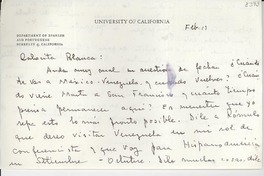 UNIVERSITY OF CALIFORNIA
Feb. 11
DEPARTMENT OF SPANISH
AND PORTUGUESE
BERKELEY 4, CALIFORNIA
Blanca:
Ando muy mal en cuestión de fechas. ¿Cuándo
te vas a México-Venezuela, y cuándo vuelves? ¿Cuán-
do viene Marta a San Francisco y cuánto tiempo
piensa permanecer aquí? Es menester que yo
sepa esto lo más pronto posible. Dile a Rómulo
que deseo visitar Venezuela en mi rol de
conferencista y que voy para Hispanoamérica
en Settiembre - Octubre. Dile muchas cosas, dile